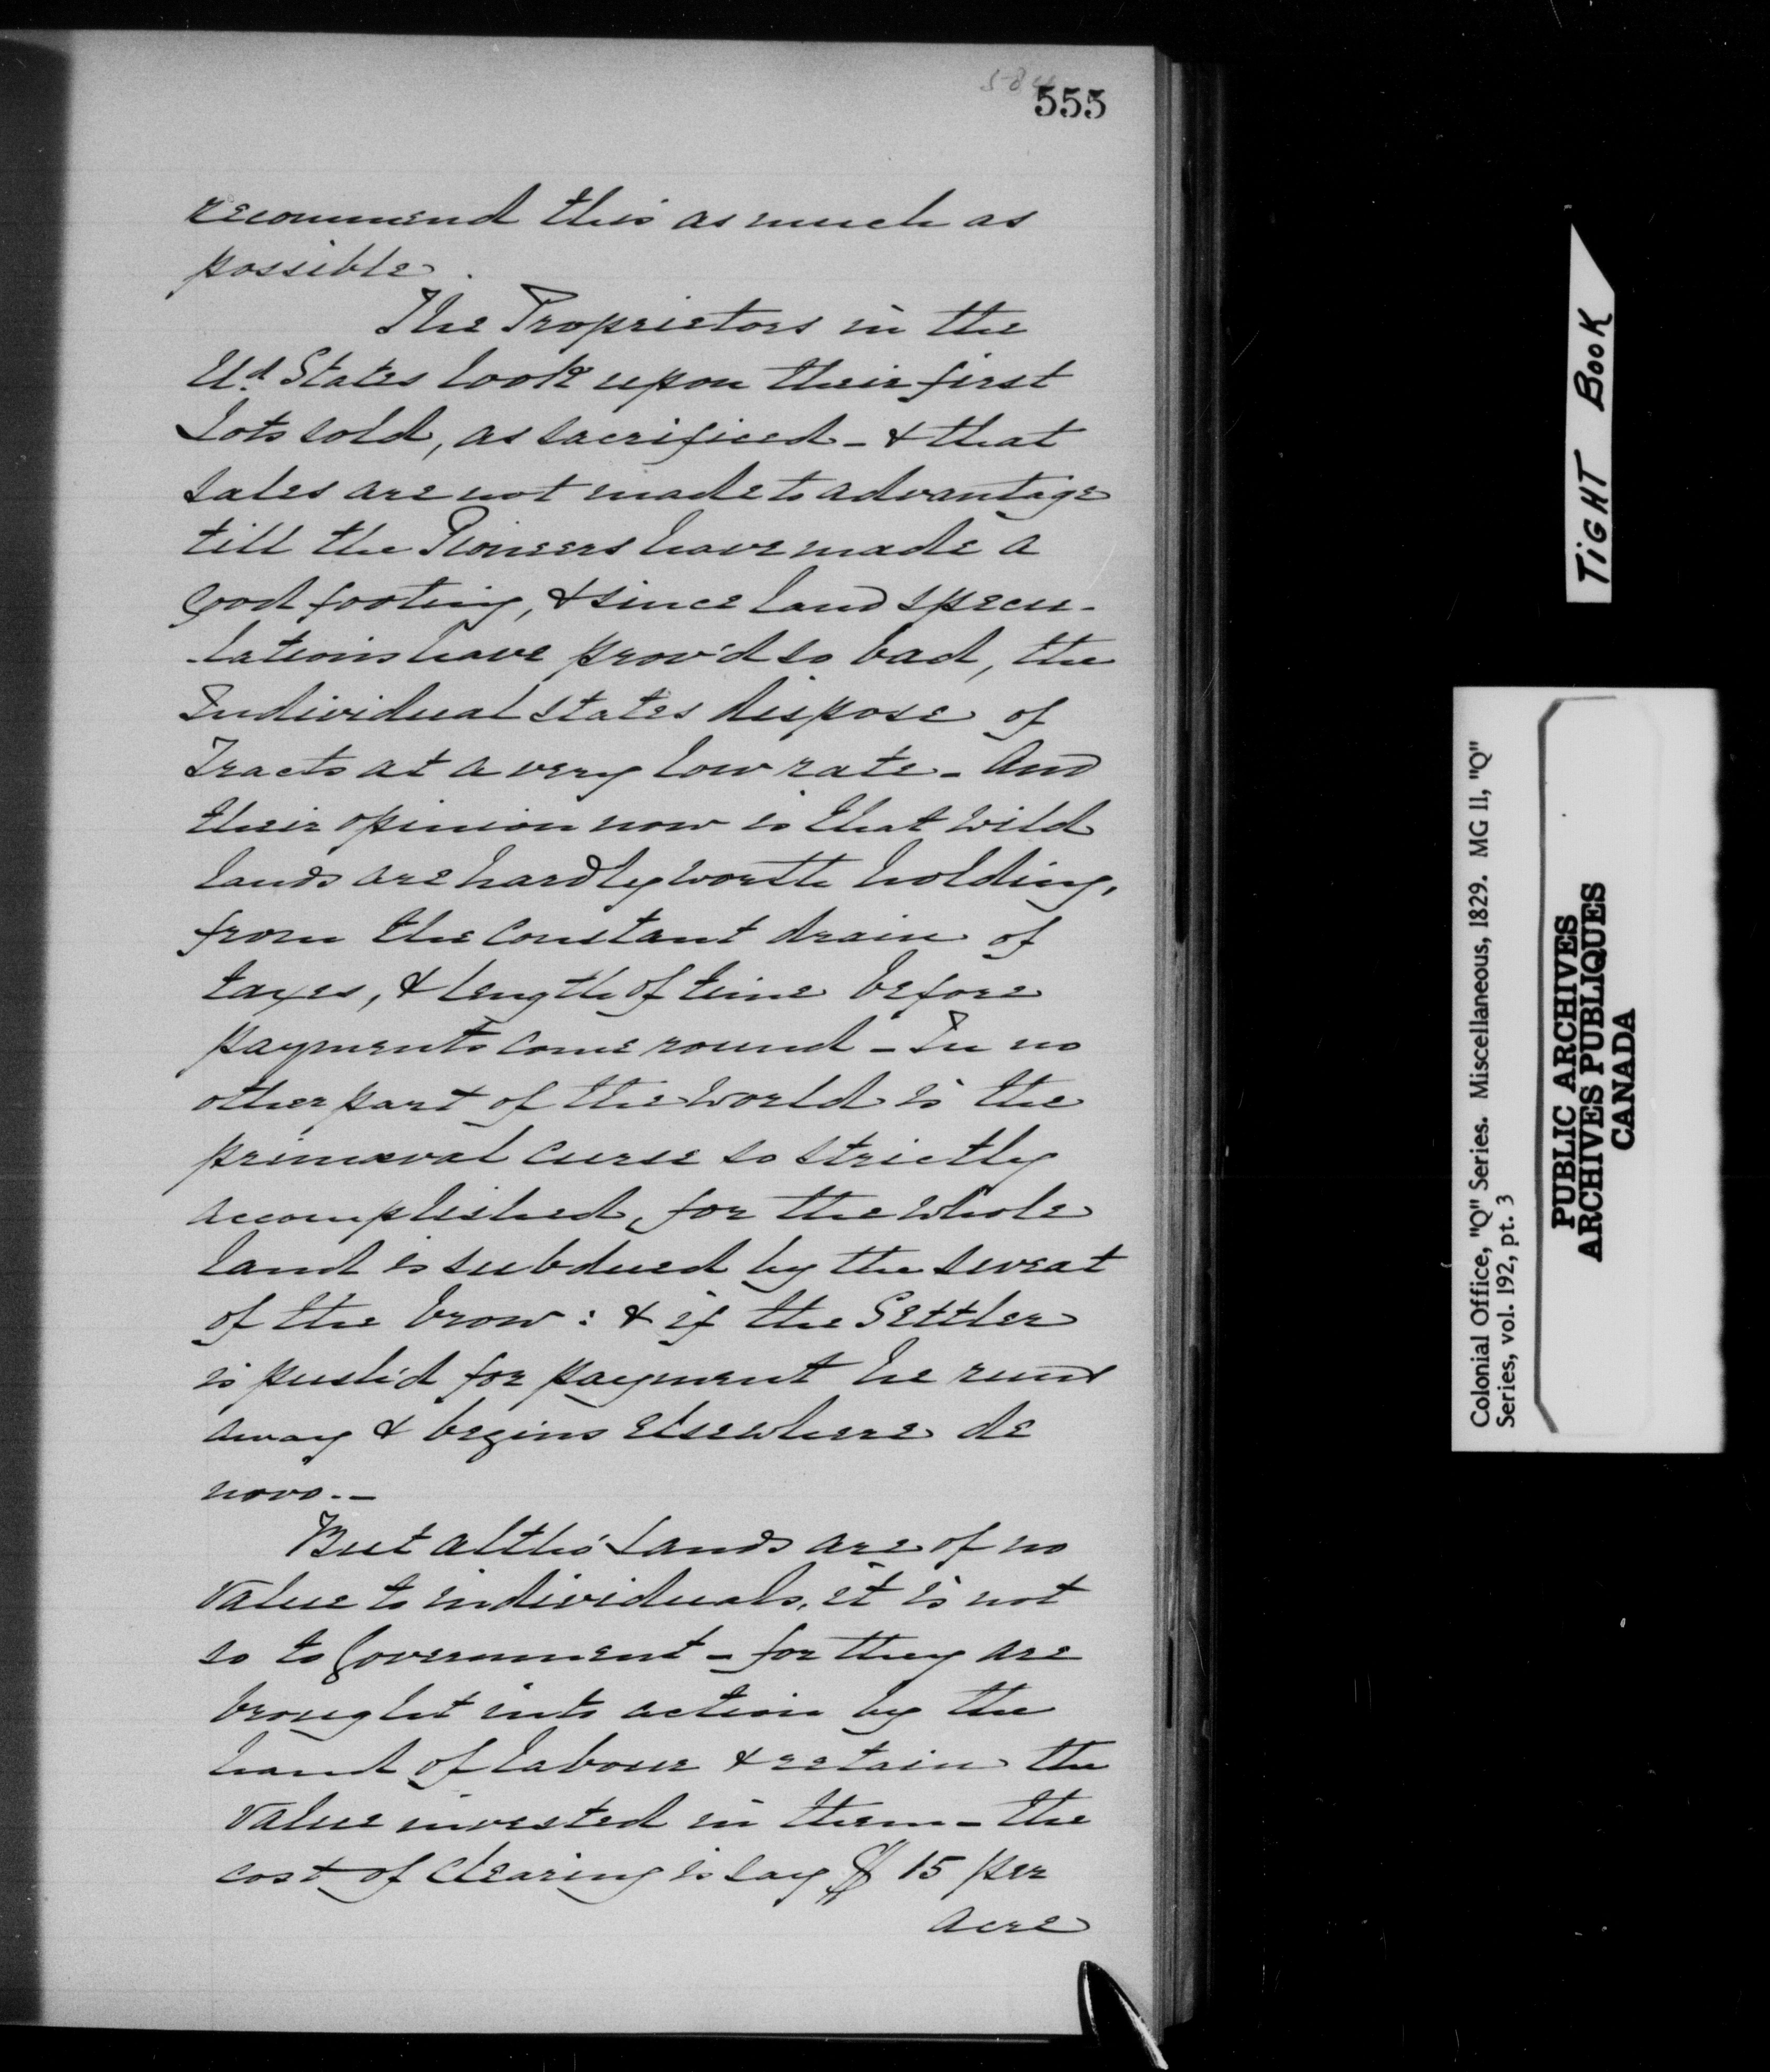 555
recommend this as much as
possible.
The Proprietors in the
Ud. States look upon their first
Lots sold, as sacrificed - & that
sales are not made to advantage
till the Pioneers have made a
good footing, & since land specu-
-lations have prov'd so bad, the
Individual States dispose of
Tracts at a very low rate - And
their opinion now is that wild
lands are hardly worth holding,
from the constant drain of
taxes, & length of time before
payments come round - In no
other part of the world is the
primaeval curse so strictly
accomplished, for the whole
land is subdued by the sweat
of the brow: & if the Settler
is push'd for payment he runs
away & begins elsewhere de
novo. -
But altho' Lands are of no
value to individuals, it is not
so to Government - for they are
brought into action by the
hand of labour & retain the
value invested in them - the
cost of clearing is say $ 15 per
acre
TIGHT BOOK
Colonial Office, "Q" Series. Miscellaneous, 1829. MG 11, "Q"
Series, vol. 192, pt. 3
PUBLIC ARCHIVES
ARCHIVES PUBLIQUES
CANADA